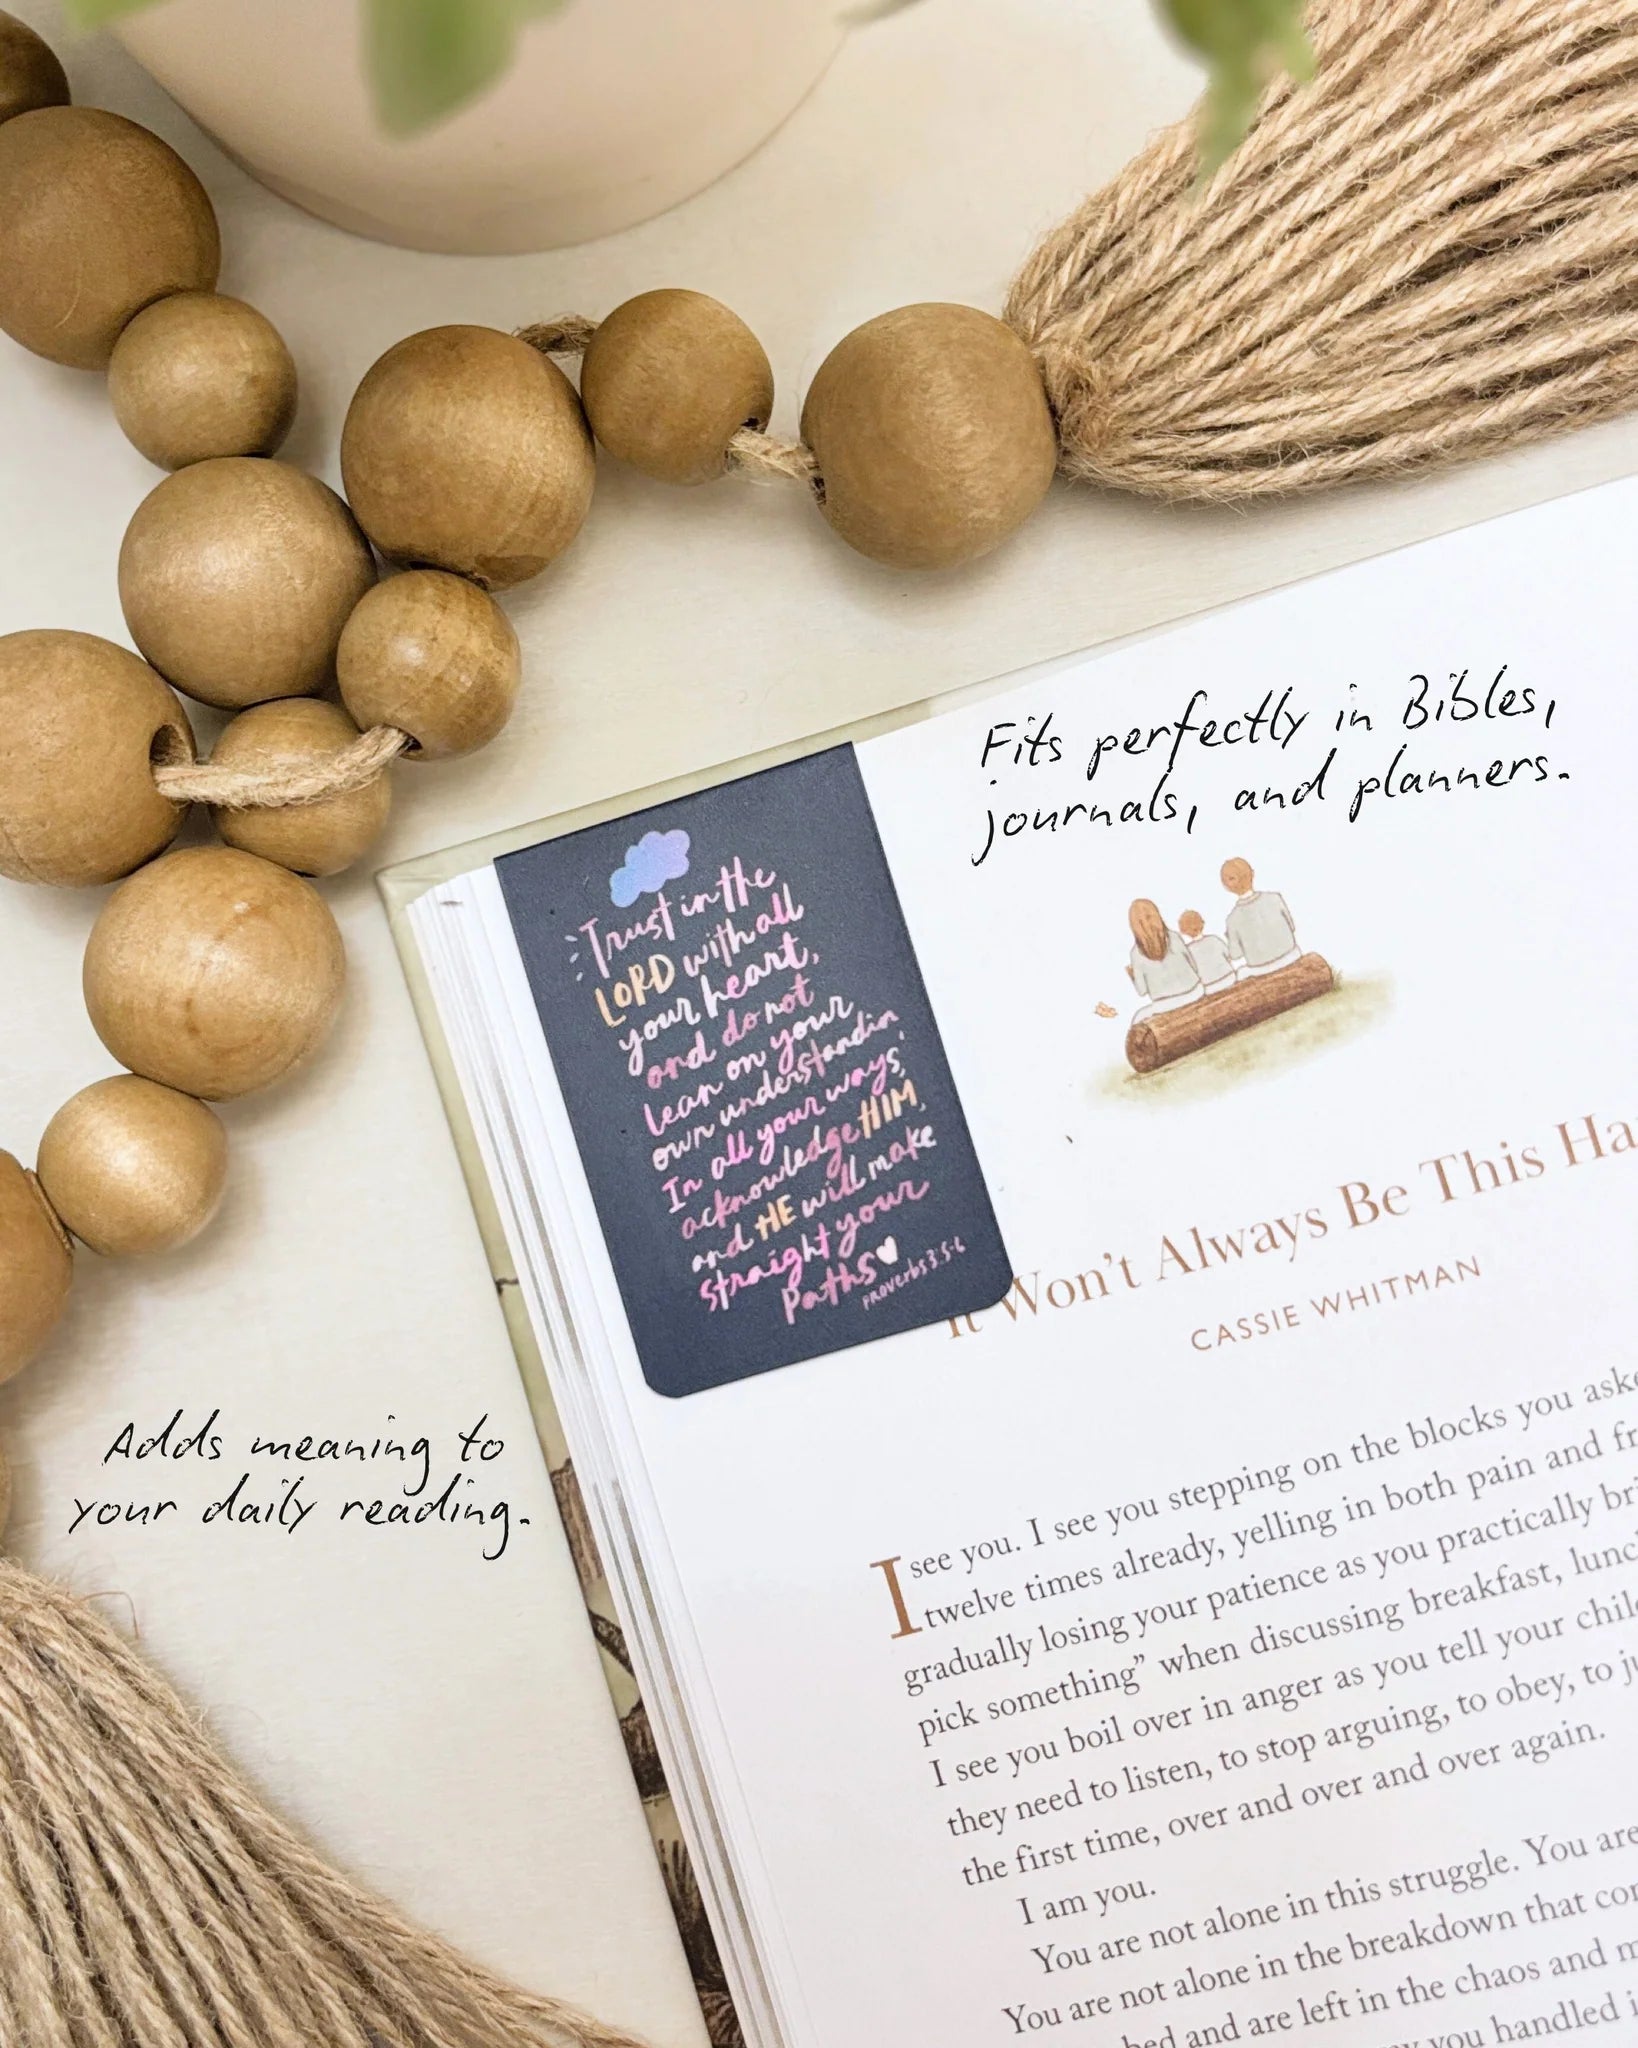 Fits perfectly in Bibles,
journals, and planners.
Trust in the
LORD with all
your heart,
and do not
lean on your
own understandin
In all your ways,
acknowledge HIM,
and HE will make
straight your
paths
PROVERBS 3:5-6
It Won't Always Be This Ha
CASSIE WHITMAN
Adds meaning to
your daily reading.
I see you. I see you stepping on the blocks you aske
twelve times already, yelling in both pain and fr
gradually losing your patience as you practically bri
pick something" when discussing breakfast, lunc
I see you boil over in anger as you tell your chil
they need to listen, to stop arguing, to obey, to ju
the first time, over and over and over again.
I am you.
You are not alone in this struggle. You are
You are not alone in the breakdown that co
bed and are left in the chaos and m
you handled i